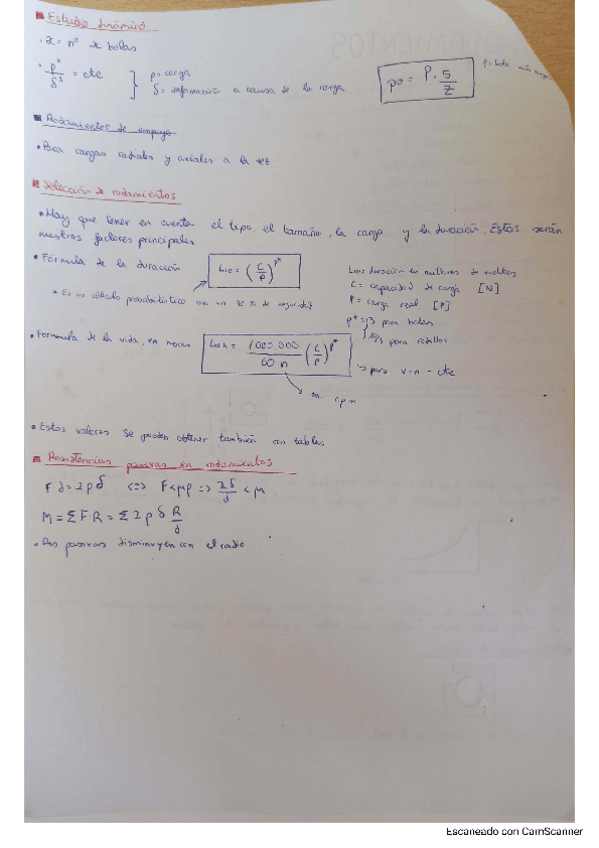 Estudio dinámico
· Z = nº de bolas
· p²/δ³ = cte } p = carga
δ = deformación a causa de la carga
p₀ = P·5/Z
Rodamientos de empuje
· Para cargas radiales y axiales a la vez
Selección de rodamientos
· Hay que tener en cuenta el tipo, el tamaño, la carga y la duración. Estos serán
nuestros factores principales
· Fórmula de la duración L₁₀ = (C/P)^p*
L₁₀ = duración en millones de vueltas
C = capacidad de carga [N]
P = carga real [P]
· Es un cálculo probabilístico con un 90% de seguridad
p* = 3 para bolas
10/3 para rodillos
· Formula de la vida, en horas L₁₀h = 1000.000/60 n (C/P)^p*
→ para v=n - cte
en r.p.m
· Estos valores se pueden obtener también con tablas
Resistencias pasivas en rodamientos
F d = 2 p δ <=> F < μp => 2δ/d < μ
M = Σ F R = Σ 2 p δ R/d
· Res pasivas disminuyen con el radio
Escaneado con CamScanner